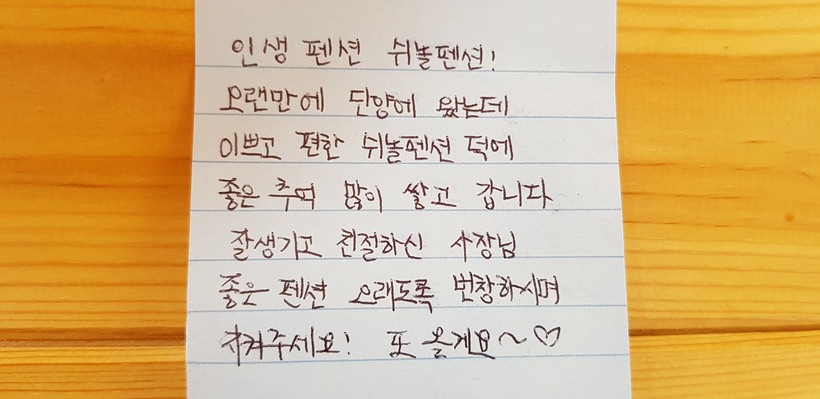 인생 펜션 쉬놀펜션!
오랜만에 단양에 왔는데
이쁘고 편한 쉬놀펜션 덕에
좋은 추억 많이 쌓고 갑니다
잘생기고 친절하신 사장님
좋은 펜션 오래도록 번창하시며
지켜주세요! 또 올게요~♡